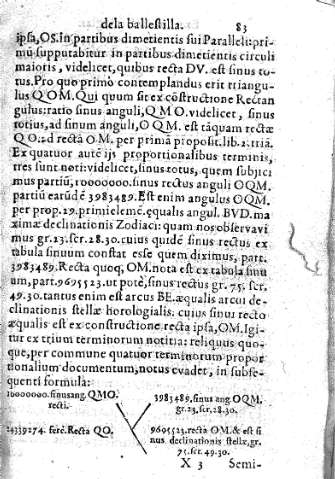 dela ballestilla. 83
ipsa, OS. in partibus dimetientis sui Paralleli: pri-
mũ supputabitur in partibus dimetientis circuli
maioris, videlicet, quibus recta DV. est sinus to-
tus. Pro quo primò contemplandus erit triangu-
lus QOM. Qui quum sit ex cõstructione Rectan
gulus: ratio sinus anguli, QMO. videlicet, sinus
totius, ad sinum anguli, OQM. est tãquam rectæ
QO. ad rectã OM. per primã proposit. lib. 2. triã.
Ex quatuor autẽ ijs proportionalibus terminis,
tres sunt noti: videlicet, sinus totus, quem subijci
mus partiũ, 10000000. sinus rectus anguli OQM.
partiũ earũdẽ 3983489. Est enim angulus OQM
per prop. 29. primi elemẽ. equalis angul. BVD. ma
ximæ declinationis Zodiaci: quam nos observavi
mus gr. 23. scr. 28. 30. cuius quidẽ sinus rectus ex
tabula sinuum constat esse quem diximus, part.
3983489. Recta quoq; OM. nota est ex tabula sinu
um, part. 9695523. ut potè, sinus rectus gr. 75. scr.
49. 30. tantus enim est arcus BE. æqualis arcui de-
clinationis stellæ horologialis: cuius sinui recto
æqualis est ex constructione recta ipsa, OM. Igi-
tur ex trium terminorum notitia: reliquus quo-
que, per commune quatuor terminorum propor
tionalium documentum, notus evadet, in subse-
quenti formula:
10000000. sinus ang. QMO. 3983489. sinus ang. OQM.
recti. gr. 23. scr. 28. 30.
24339274. ferè. Recta QO. 9695523. recta OM. & est si
nus declinationis stellæ, gr.
75. scr. 49. 30.
X 3 Semi-